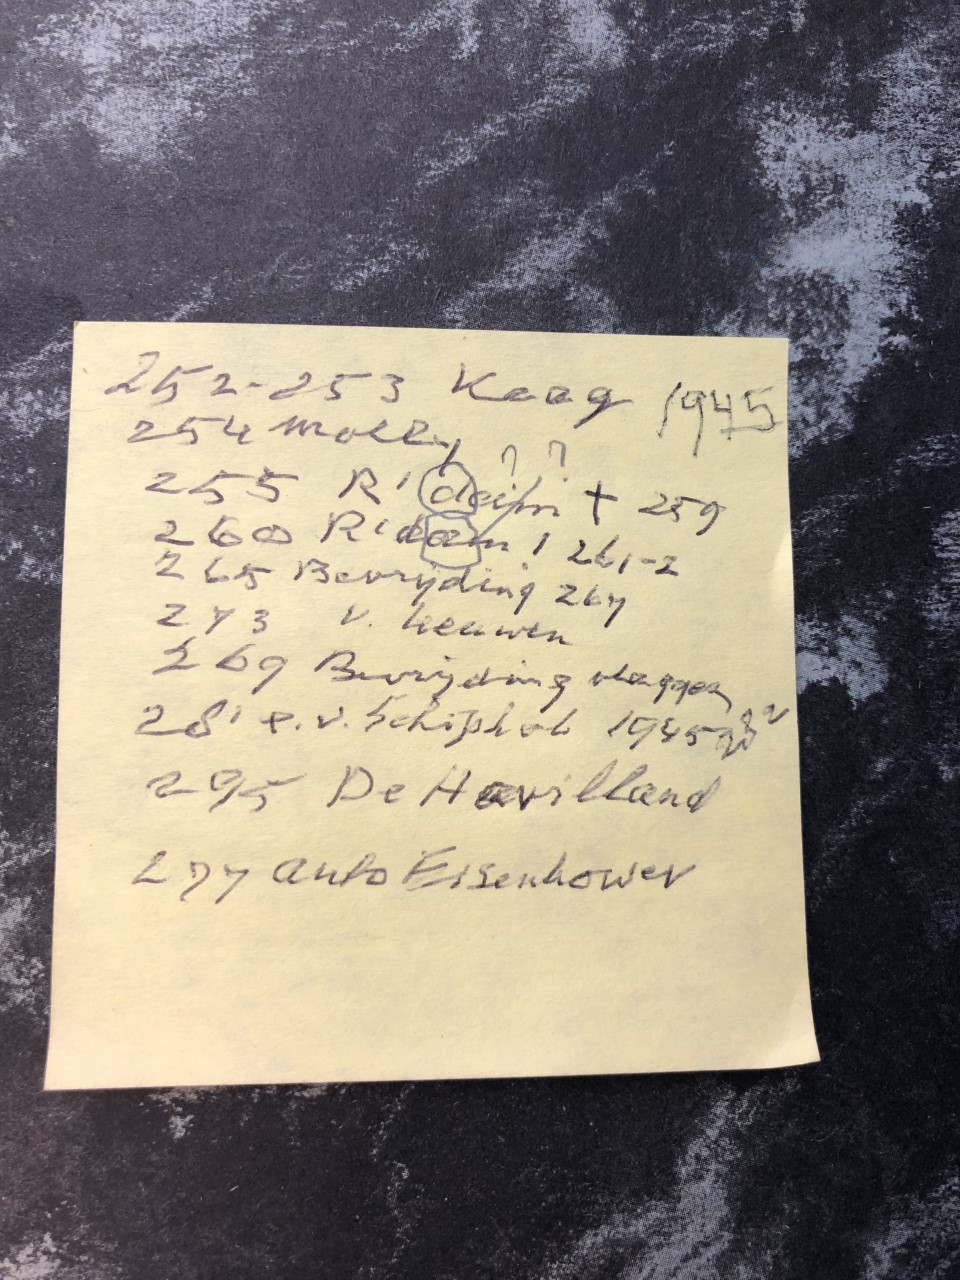 252-253 Kaag 1945
254 Molly
? ?
255 R' + 259
260 R'dam / 261-2
265 Bevrijding 267
273 v. Leeuwen
269 Bevrijding vlaggen
28' e.v. Schiphol 1945
295 De Havilland
277 auto Eisenhower